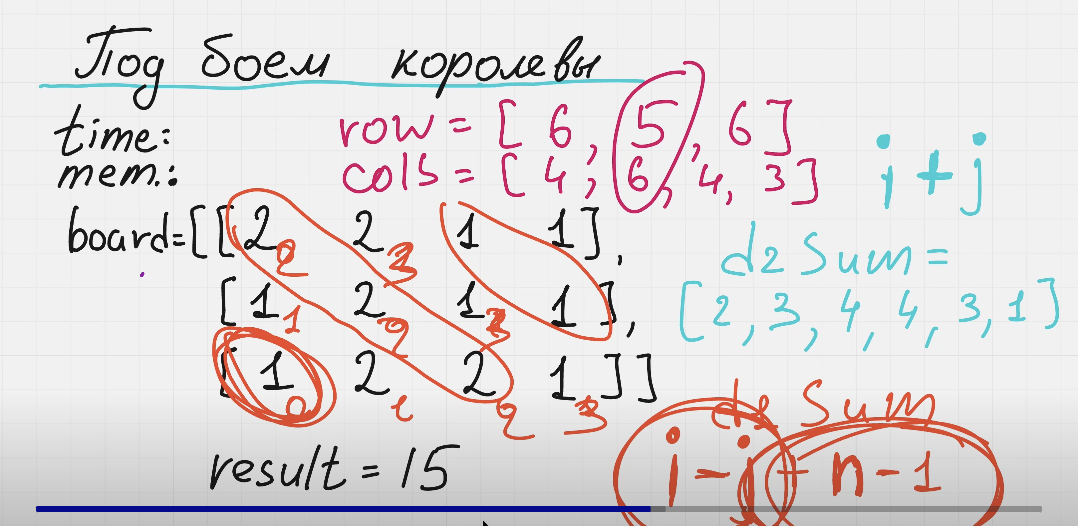 Под боем королевы
time:
mem.:
row = [ 6, 5, 6 ]
cols = [ 4, 6, 4, 3 ]
i + j
board = [[ 2 2 1 1 ],
[ 1 2 1 1 ],
[ 1 2 2 1 ]]
d2 Sum =
[ 2, 3, 4, 4, 3, 1 ]
Sum
i - j + n - 1
result = 15